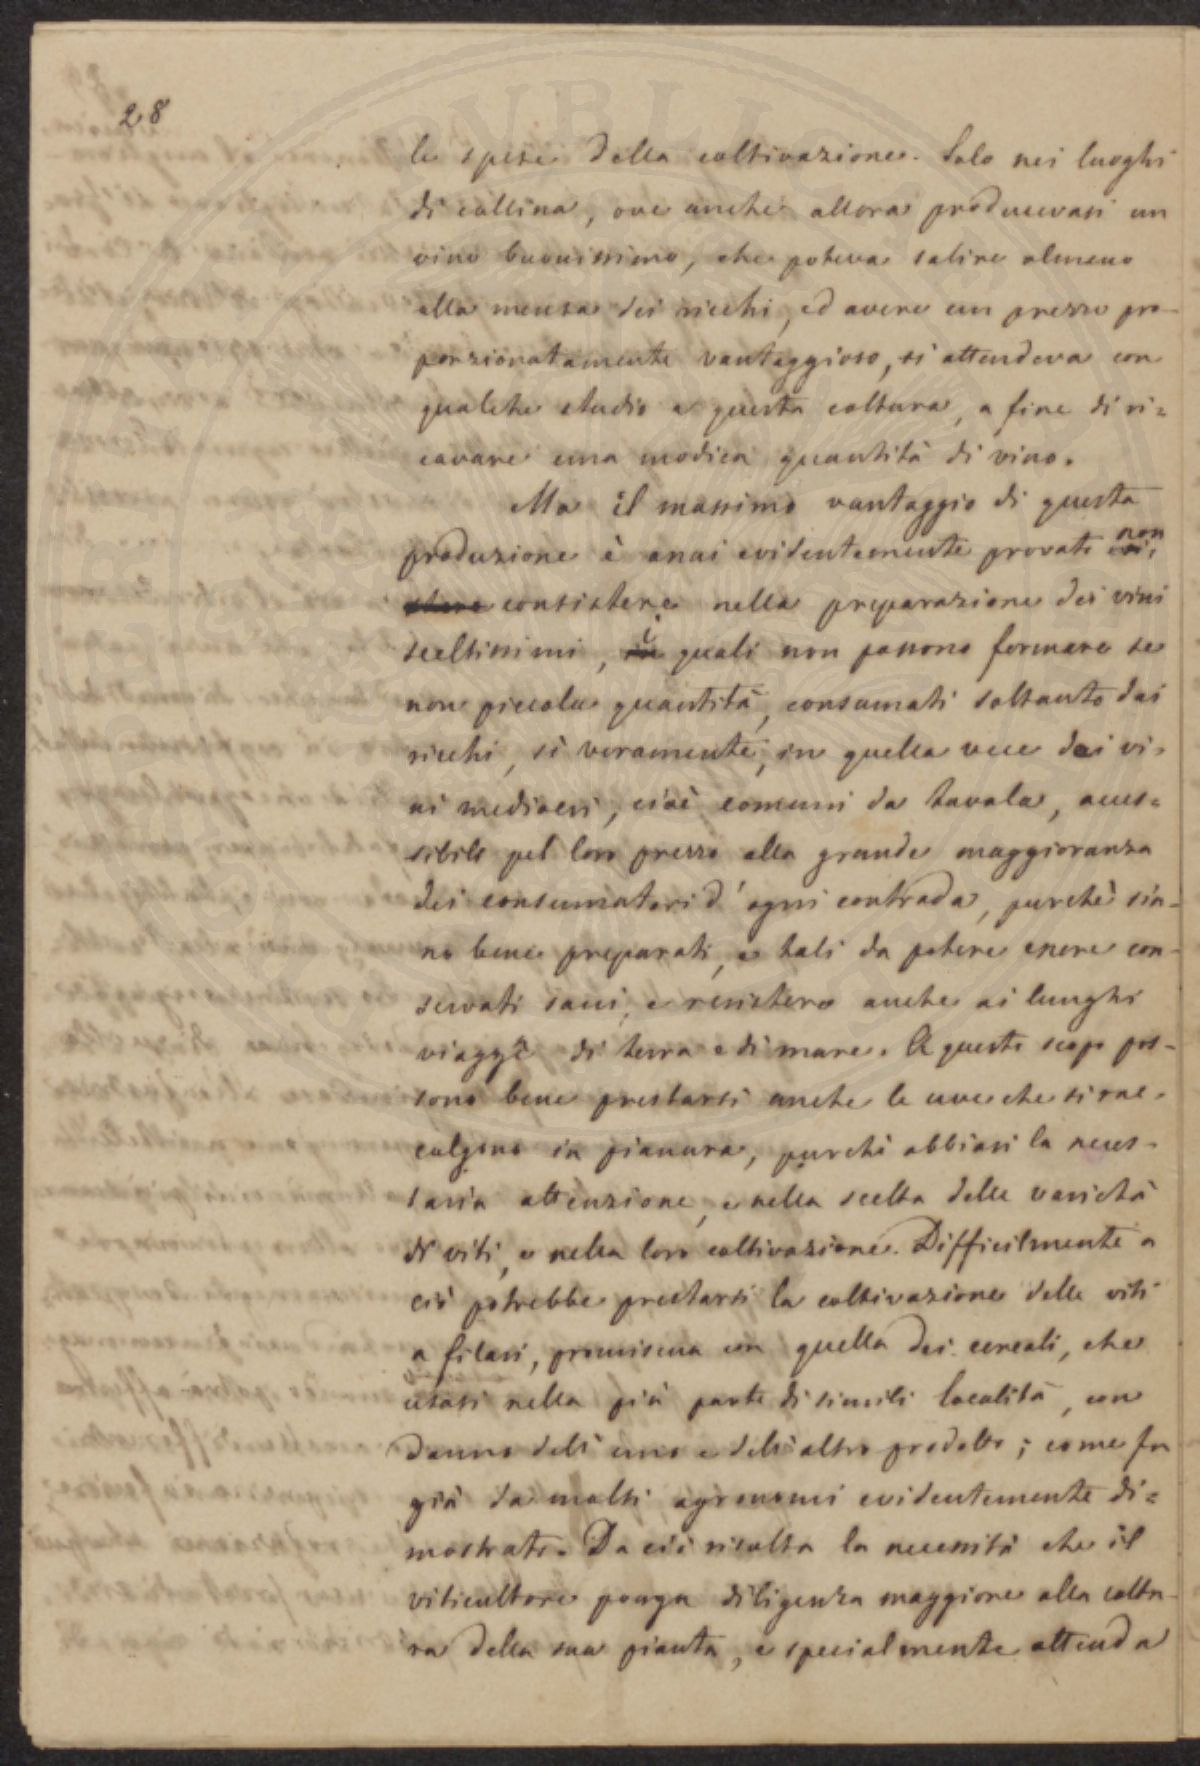 28
le spese della coltivazione. Solo nei luoghi
di collina, ove anche allora producevasi un
vino buonissimo, che poteva salire almeno
alla mensa dei ricchi, ed avere un prezzo pro-
porzionatamente vantaggioso, si attendeva con
qualche studio a questa coltura, a fine di ri=
cavare una modica quantità di vino.
Ma il massimo vantaggio di questa
produzione è assai evidentemente provato non
consistere nella preparazione dei vini
sceltissimi, i quali non possono formare se
non piccola quantità, consumati soltanto dai
ricchi, sì veramente, in quella vece dei vi-
ni mediocri, cioè comuni da tavola, acces=
sibili pel loro prezzo alla grande maggioranza
dei consumatori d'ogni contrada, purchè sia-
no bene preparati, e tali da potere essere con-
servati sani, e resistere anche ai lunghi
viaggi di terra e di mare. A questo scopo pos-
sono bene prestarsi anche le uve che si rac-
colgono in pianura, purchè abbiasi la neces-
saria attenzione, e nella scelta delle varietà
di viti, e nella loro coltivazione. Difficilmente a
ciò potrebbe prestarsi la coltivazione delle viti
a filari, promiscua con quella dei cereali, che
usasi nella più parte di simili località, con
danno dell'uno e dell'altro prodotto; come fu
già da molti agronomi evidentemente di=
mostrato. Da ciò risulta la necessità che il
viticultore ponga diligenza maggiore alla coltu-
ra della sua pianta, e specialmente attenda